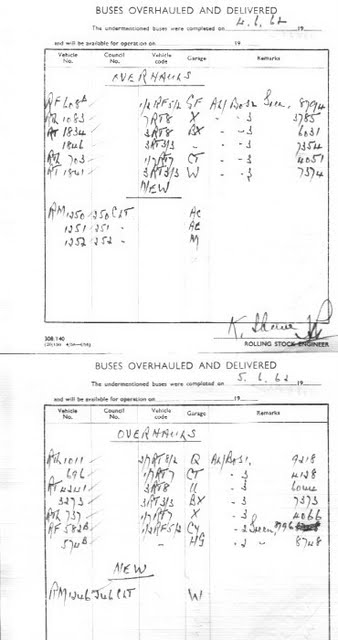 BUSES OVERHAULED AND DELIVERED
The undermentioned buses were completed on 4.6.62 19
and will be available for operation on 19
Vehicle No. Council No. Vehicle code Garage Remarks
OVERHAULS
1/2RF5/2 GF 8794
1083 7RT8 X - 3 3785
RT 1834 3RT8 BX - 3 6031
1846 3RT3/3 - - 3 7354
703 1/7RT7 CT - 3 4051
RT 1841 3RT3/3 W - 3 7374
NEW
RM 1250 250 CLT AC
1251 251 - AC
1252 252 - M
308.140
ROLLING STOCK ENGINEER
BUSES OVERHAULED AND DELIVERED
The undermentioned buses were completed on 5.6.62 19
and will be available for operation on 19
Vehicle No. Council No. Vehicle code Garage Remarks
OVERHAULS
1011 Q 9218
696 1/7RT7 CT - 3 4128
RT 4241 3RT8
3273 3RT3/3 BX - 3 7373
737 1/7RT7 X - 3 4066
RF 582B 1/2RF5/2 CY
574B - HG 2 " 8748
NEW
RM 1246 246 CLT W